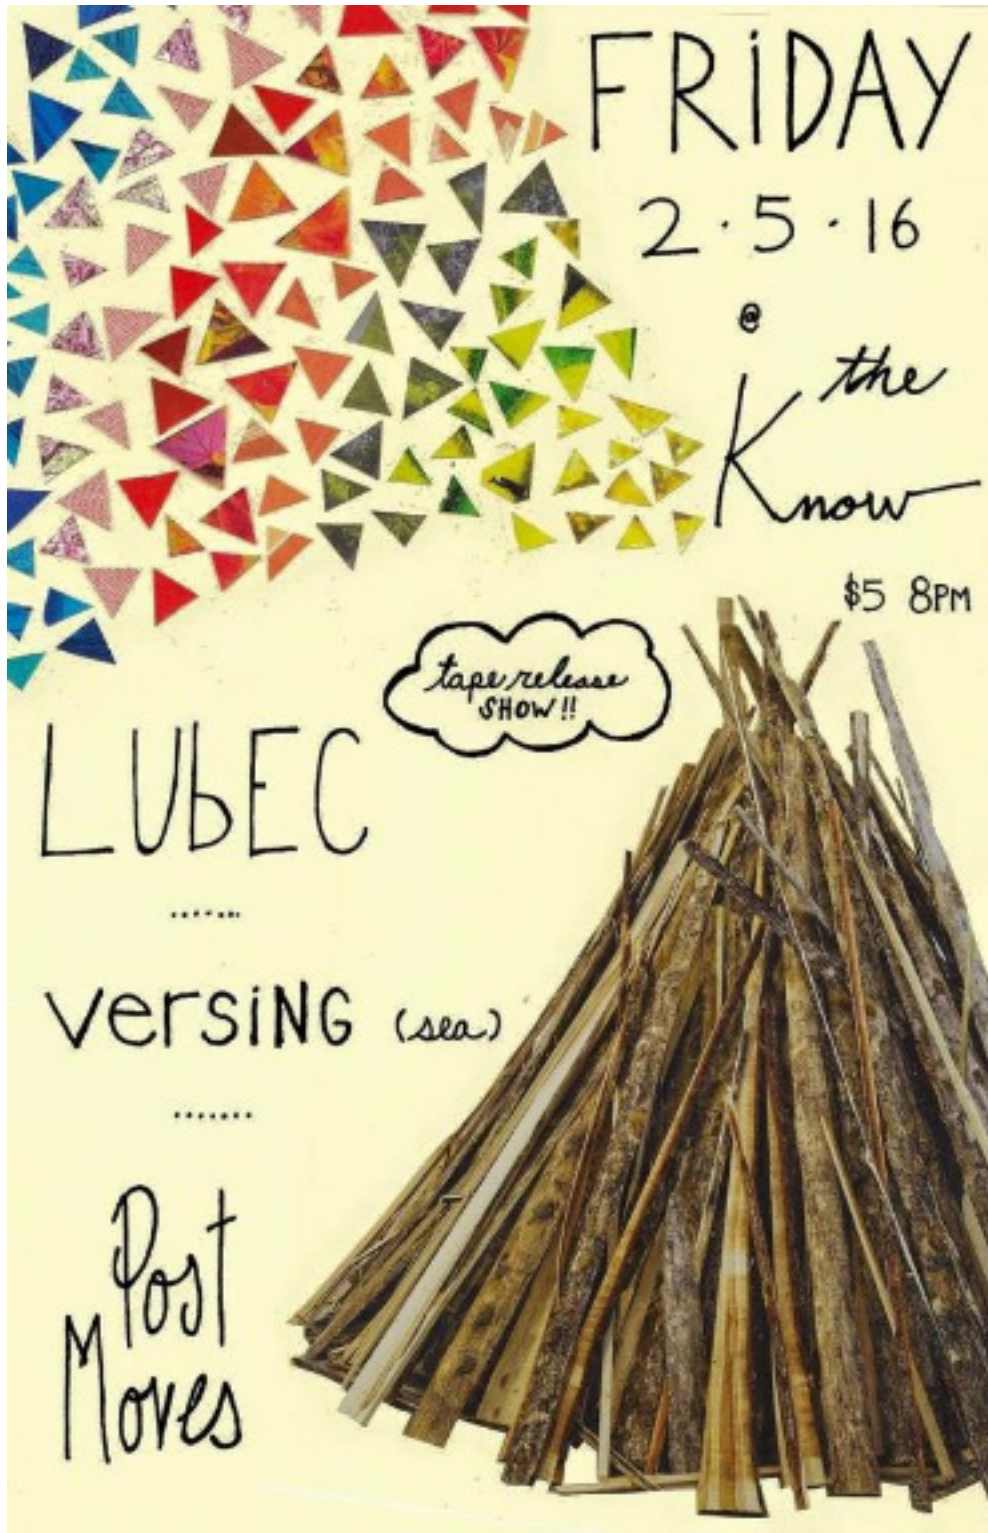 FRiDAY
2·5·16
@
the
Know
$5 8PM
tape release
SHOW!!
LUbEC
.......
versiNG (sea)
.......
Post
Moves